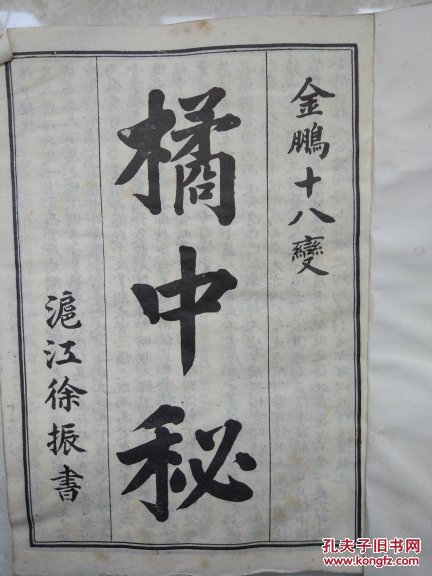 金鵬十八變
橘中秘
滬江徐振書
孔夫子旧书网
kongfz.com